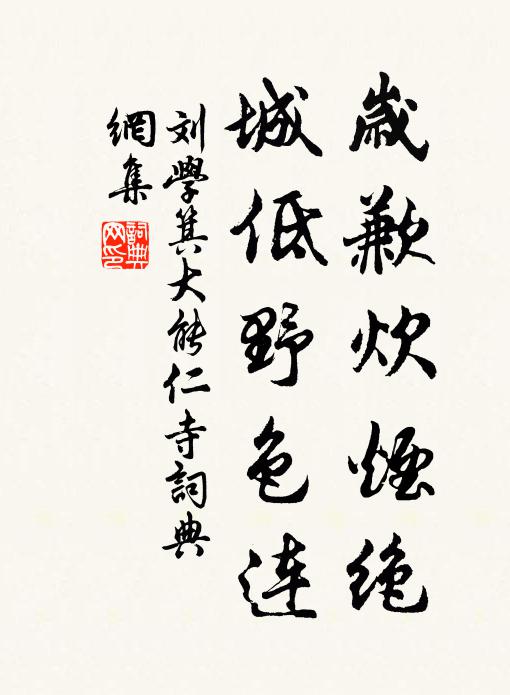 歲歉炊煙绝
城低野色连
刘學箕大能仁寺詞典
網集
詞典网印